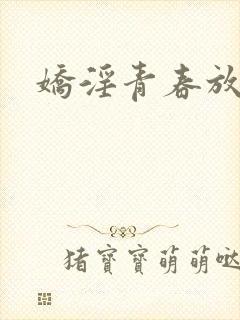 嬌淫青春放
猪寶寶萌萌哒